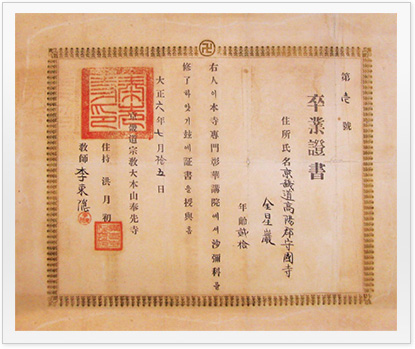 卍
第壹號
卒業證書
住所氏名 京畿道高陽郡守國寺
金星巖
年齡 貳拾
右人이本寺專門彰華講院에서沙彌科를
修了하얏기玆에証書를授與홈
大正六年七月拾五日
京畿道宗教大本山奉先寺
住持 洪月初
教師 李東